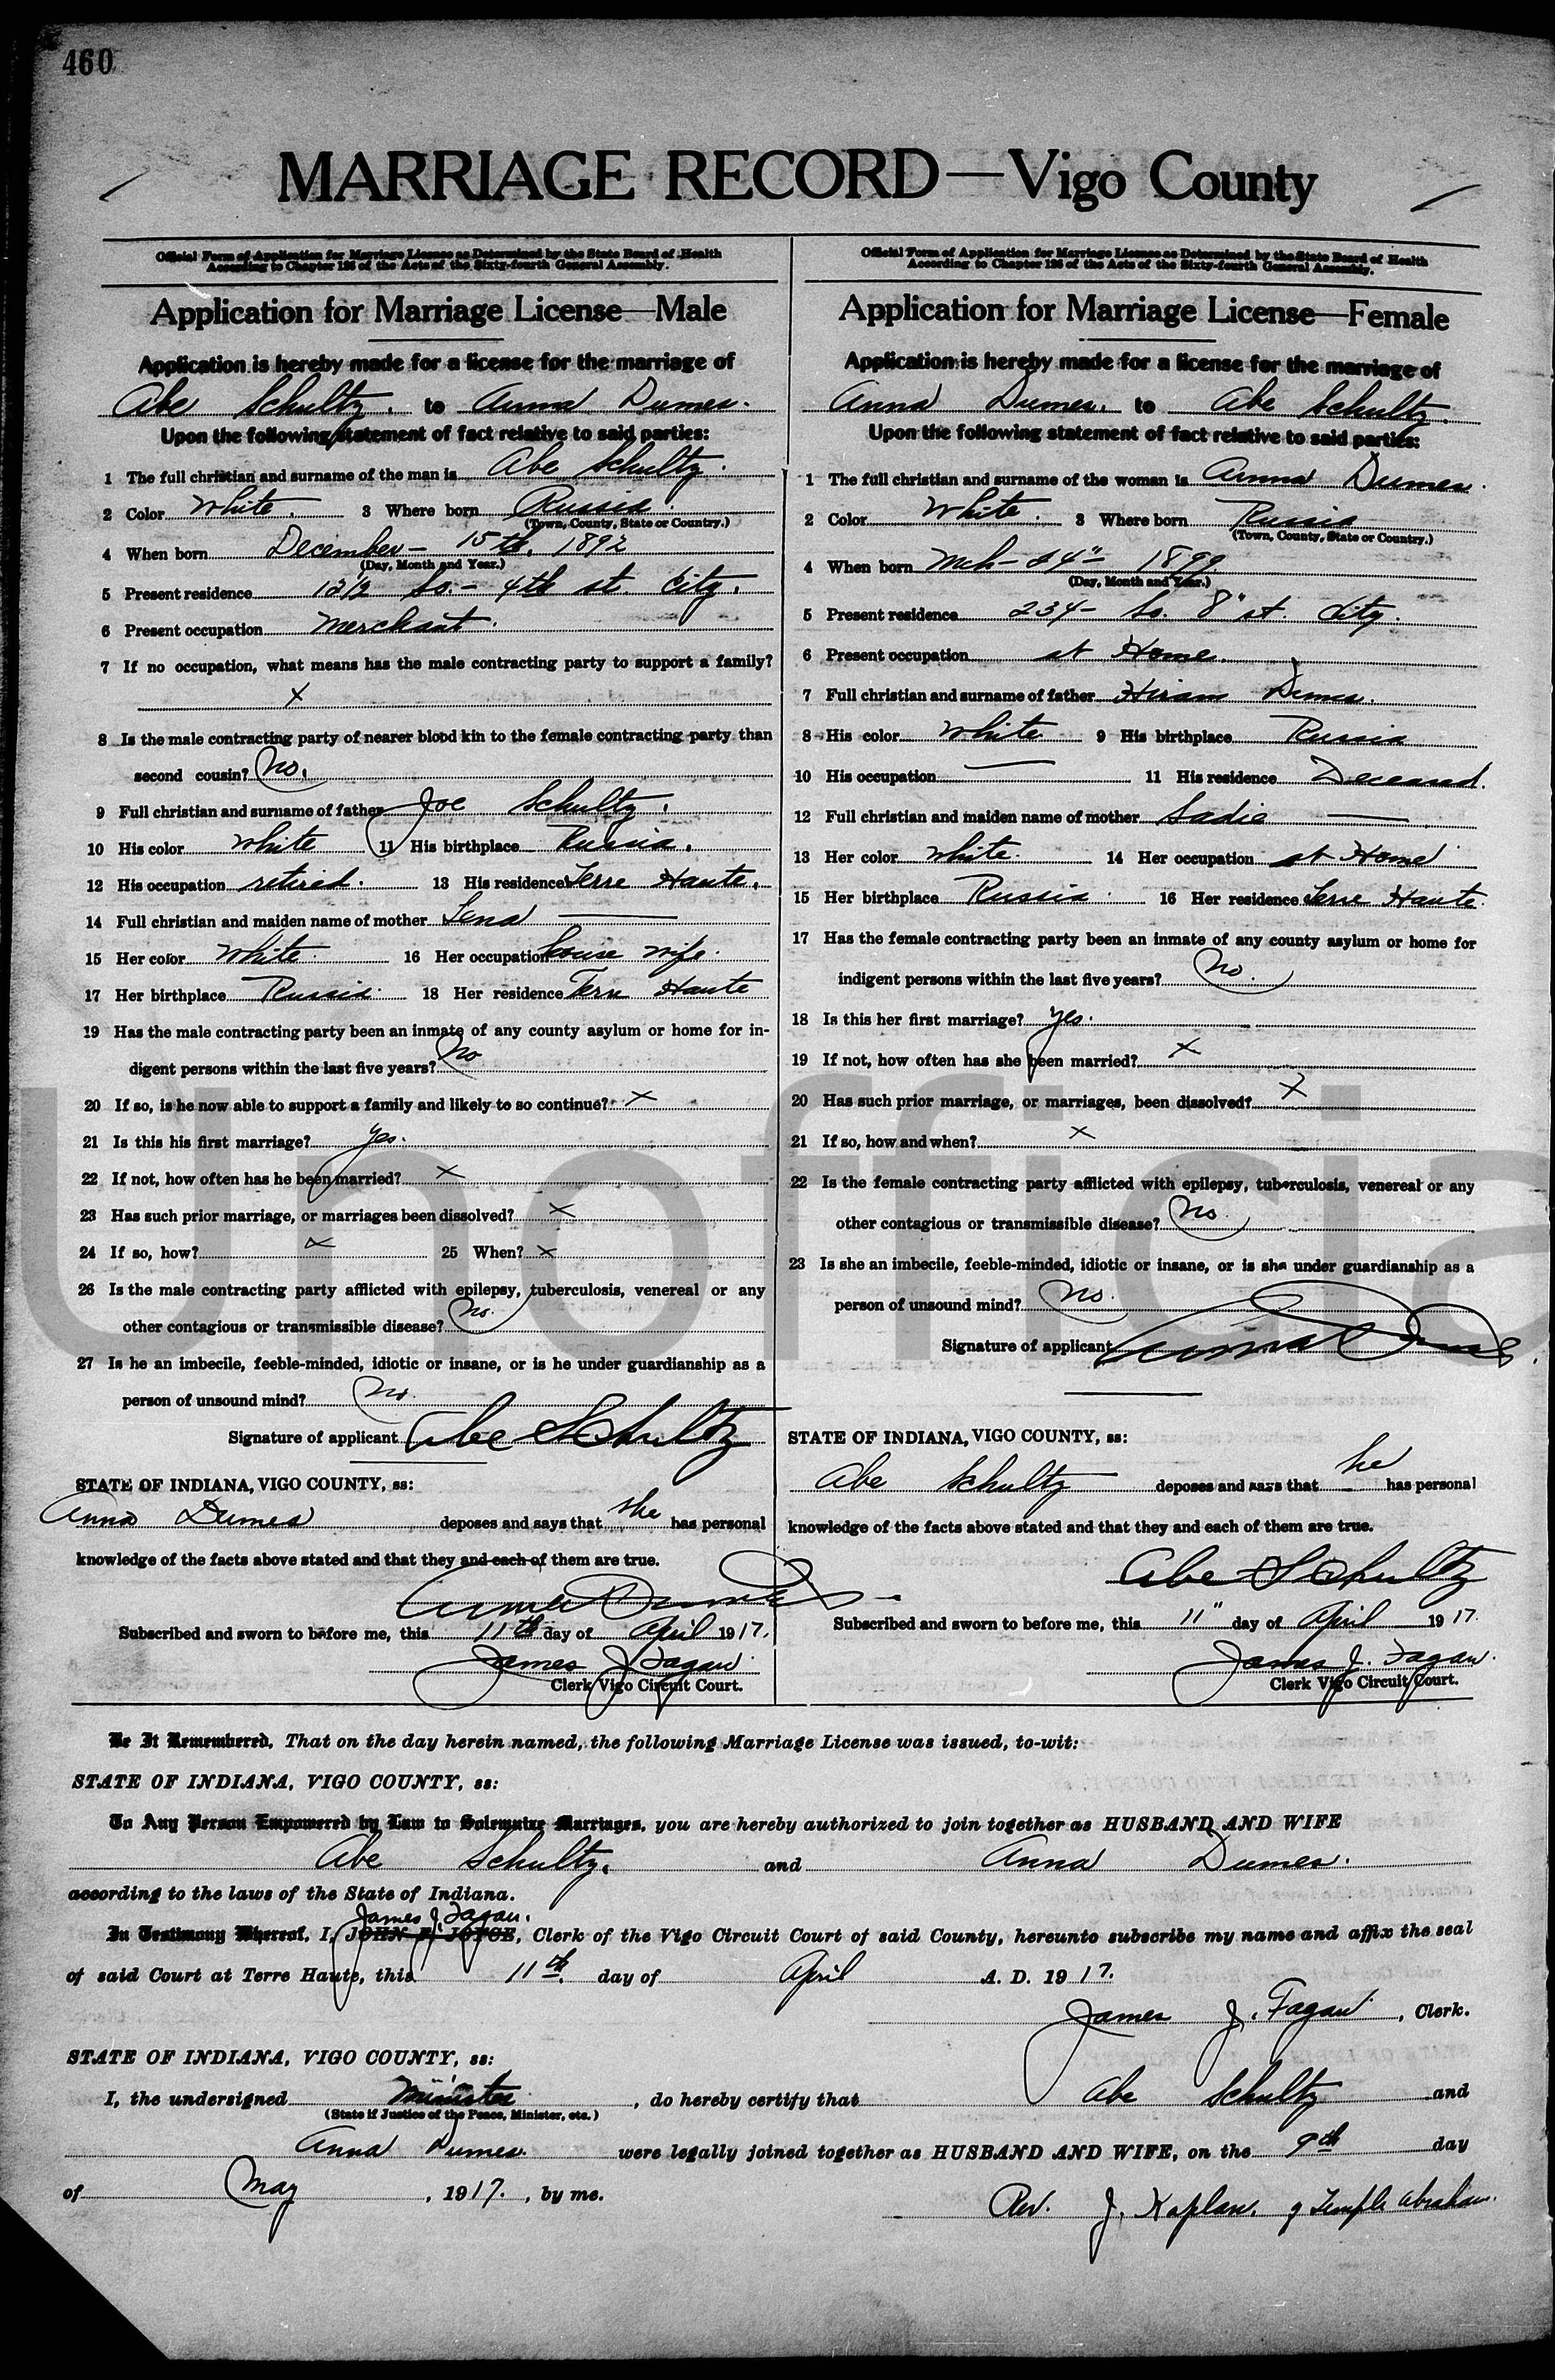 460
MARRIAGE RECORD—Vigo County
Official Form of Application for Marriage License as Determined by the State Board of Health
According to Chapter 126 of the Acts of the Sixty-fourth General Assembly.
Application for Marriage License—Male
Application is hereby made for a license for the marriage of
Abe Schultz. to Anna Dumes.
Upon the following statement of fact relative to said parties:
1 The full christian and surname of the man is Abe Schultz.
2 Color White. 3 Where born Russia.
(Town, County, State or Country.)
4 When born December - 15th. 1892
(Day, Month and Year.)
5 Present residence 12½ So. - 4th st. City.
6 Present occupation Merchant.
7 If no occupation, what means has the male contracting party to support a family?
X
8 Is the male contracting party of nearer blood kin to the female contracting party than
second cousin? No.
9 Full christian and surname of father Joe Schultz.
10 His color White 11 His birthplace Russia.
12 His occupation retired. 13 His residence Terre Haute.
14 Full christian and maiden name of mother Lena —
15 Her color White. 16 Her occupation House wife.
17 Her birthplace Russia. 18 Her residence Terre Haute
19 Has the male contracting party been an inmate of any county asylum or home for in-
digent persons within the last five years? No
20 If so, is he now able to support a family and likely to so continue? X
21 Is this his first marriage? yes.
22 If not, how often has he been married? X
23 Has such prior marriage, or marriages been dissolved? X
24 If so, how? X 25 When? X
26 Is the male contracting party afflicted with epilepsy, tuberculosis, venereal or any
other contagious or transmissible disease? No.
27 Is he an imbecile, feeble-minded, idiotic or insane, or is he under guardianship as a
person of unsound mind? No.
Signature of applicant Abe Schultz
STATE OF INDIANA, VIGO COUNTY, ss:
Anna Dumes deposes and says that she has personal
knowledge of the facts above stated and that they and each of them are true.
Anna Dumes
Subscribed and sworn to before me, this 11th day of April 1917.
James J. Fagan
Clerk Vigo Circuit Court.
Official Form of Application for Marriage License as Determined by the State Board of Health
According to Chapter 126 of the Acts of the Sixty-fourth General Assembly.
Application for Marriage License—Female
Application is hereby made for a license for the marriage of
Anna Dumes. to Abe Schultz.
Upon the following statement of fact relative to said parties:
1 The full christian and surname of the woman is Anna Dumes.
2 Color White. 3 Where born Russia
(Town, County, State or Country.)
4 When born Mch - 24" 1899.
(Day, Month and Year.)
5 Present residence 234 - So. 8" st. City.
6 Present occupation at Home.
7 Full christian and surname of father Hiram Dumes.
8 His color White 9 His birthplace Russia
10 His occupation — 11 His residence Deceased.
12 Full christian and maiden name of mother Sadie —
13 Her color White. 14 Her occupation at Home
15 Her birthplace Russia. 16 Her residence Terre Haute.
17 Has the female contracting party been an inmate of any county asylum or home for
indigent persons within the last five years? No.
18 Is this her first marriage? yes.
19 If not, how often has she been married? X
20 Has such prior marriage, or marriages, been dissolved? X
21 If so, how and when? X
22 Is the female contracting party afflicted with epilepsy, tuberculosis, venereal or any
other contagious or transmissible disease? No
23 Is she an imbecile, feeble-minded, idiotic or insane, or is she under guardianship as a
person of unsound mind? No.
Signature of applicant Anna Dumes
STATE OF INDIANA, VIGO COUNTY, ss:
Abe Schultz deposes and says that he has personal
knowledge of the facts above stated and that they and each of them are true.
Abe Schultz
Subscribed and sworn to before me, this 11" day of April 1917.
James J. Fagan.
Clerk Vigo Circuit Court.
Be It Remembered, That on the day herein named, the following Marriage License was issued, to-wit:
STATE OF INDIANA, VIGO COUNTY, ss:
To Any Person Empowered by Law to Solemnize Marriages, you are hereby authorized to join together as HUSBAND AND WIFE
Abe Schultz. and Anna Dumes.
according to the laws of the State of Indiana.
James J. Fagan.
In Testimony Whereof, I, JOHN F. JOYCE, Clerk of the Vigo Circuit Court of said County, hereunto subscribe my name and affix the seal
of said Court at Terre Haute, this 11th. day of April A. D. 1917.
James J. Fagan, Clerk.
STATE OF INDIANA, VIGO COUNTY, ss:
I, the undersigned Minister, do hereby certify that Abe Schultz and
(State if Justice of the Peace, Minister, etc.)
Anna Dumes. were legally joined together as HUSBAND AND WIFE, on the 9th day
of May, 1917., by me.
Rev. J. Kaplan. of Temple Abraham.
Unofficia